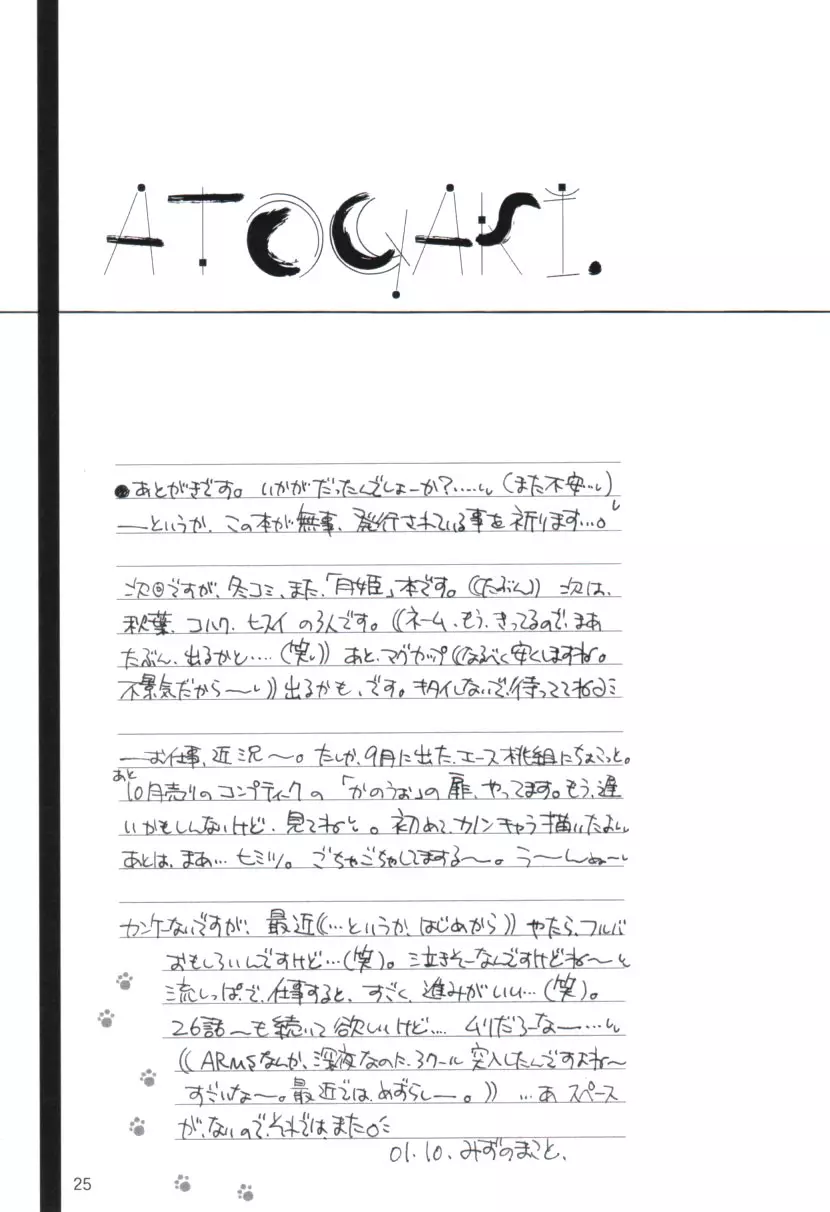 ATOGAKI.
●あとがきです。いかがだったんでしょーか?……(また不安…)
——というか、この本が無事、発行されている事を祈ります…。
次回ですが、冬コミ、また、「月姫」本です。((たぶん)) 次は、
秋葉、コハク、ヒスイの3人です。((ネーム、もう、きってるので、まあ
たぶん、出るかと…(笑)) あと、マグカップ((なるべく安くしますね。
不景気だから〜)) 出るかも、です。キタイしないで、待っててね
——お仕事、近況〜。たしか、9月に出た、エース桃組にちょこっと。
あと
10月売りのコンプティークの「かのうぉ」の扉、やってます。もう、遅
いかもしんないけど、見てねと。初めて、カノンキャラ描いたよ
あとは、まあ…ヒミツ。ごちゃごちゃしてまする〜。う〜んぬ〜
カンケーないですが、最近((…というか、はじめから)) やたら、フルバ
おもしろいんですけど…(笑)。泣きそーなんですけどね〜と
流しっぱで、仕事すると、すごく、進みがいい…(笑)。
26話〜も続いて欲しいけど…、ムリだろーなー……
((ARMSなんか、深夜なのに、3クール突入したんですよね〜
すごいな〜。最近では、めずらし〜。)) …あ スペース
が、ないので、それでは、また。
01.10. みずのまこと、
25